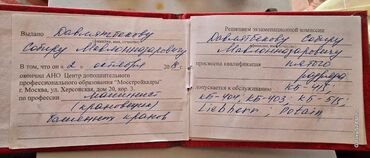 Выдано Давлятбекову
Сабиру Мавлоназаровичу
В том, что он « 2 » октября 20
окончил АНО Центр дополнительного
профессионального образования "Мосстройкадры"
г. Москва, ул. Херсонская, дом 20, кор. 3.
по профессии машинист
(крановщик)
башенных кранов
Решением экзаменационной комиссии
Давлятбекову Сабиру
Мавлоназаровичу
присвоена квалификация пятого
разряда
допускается к обслуживанию КБ-415,
КБ-404, КБ-403, КБ-515,
Liebherr, Potain